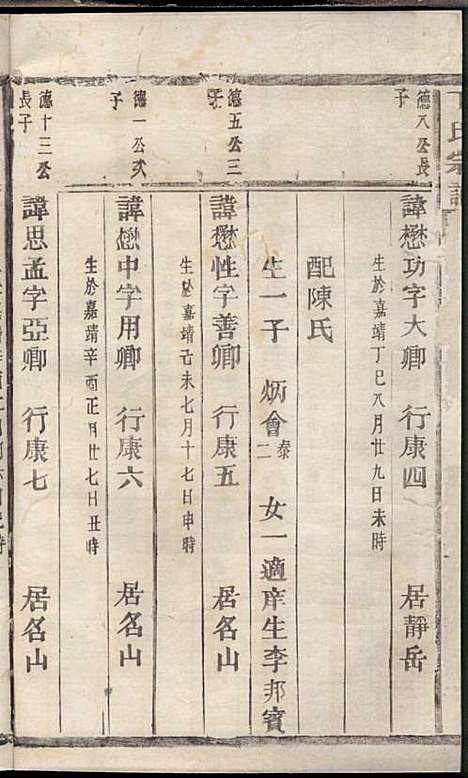 氏宗譜
德八公長
子
諱懋功字大卿 行康四 居靜岳
生於嘉靖丁巳八月廿九日未時
配陳氏
生一子 炳會 泰二 女一適庠生李邦賓
德五公三
子
諱懋性字善卿 行康五 居名山
生於嘉靖己未七月十七日申時
德一公次
子
諱懋中字用卿 行康六 居名山
生於嘉靖辛酉正月廿七日丑時
德十三公
長子
諱思孟字亞卿 行康七 居名山